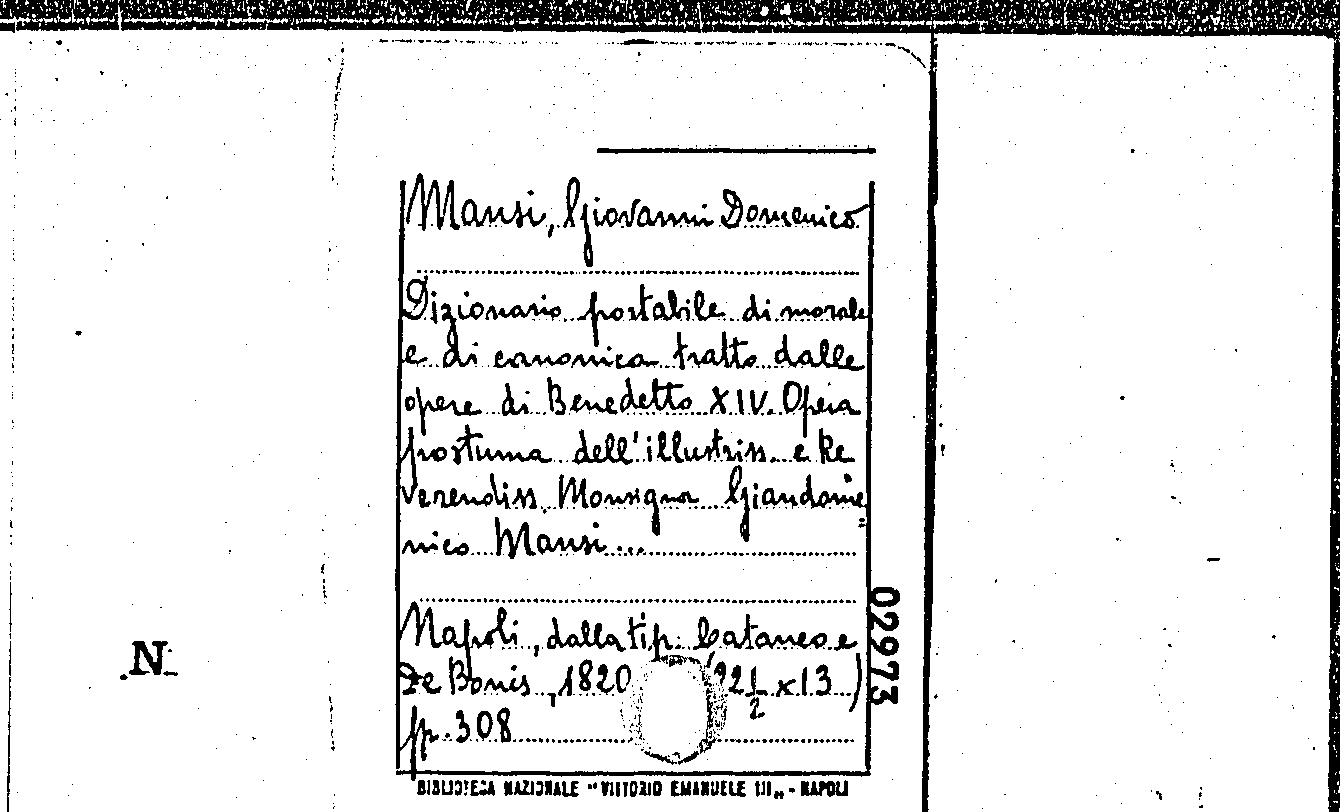 Mansi, Giovanni Domenico
Dizionario portabile di morale
e di canonica tratto dalle
opere di Benedetto XIV. Opera
postuma dell'illustriss. e Re
verendiss. Monsignor Giandome
nico Mansi...
Napoli, dalla tip. Cataneo e
De Bonis, 1820 (22 1/2 x 13)
pp. 308
02973
N
BIBLIOTECA NAZIONALE "VITTORIO EMANUELE III" - NAPOLI